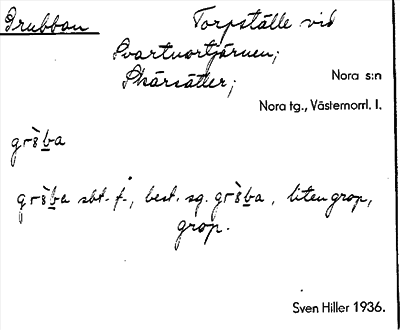 Grubban Torpställe vid
Svartvortjärnen;
Skärsätter;
Nora s:n
Nora tg., Västernorrl. l.
grò̈ba
grò̈ba sbt. f., best. sg. grò̈ba, liten grop,
grop.
Sven Hiller 1936.